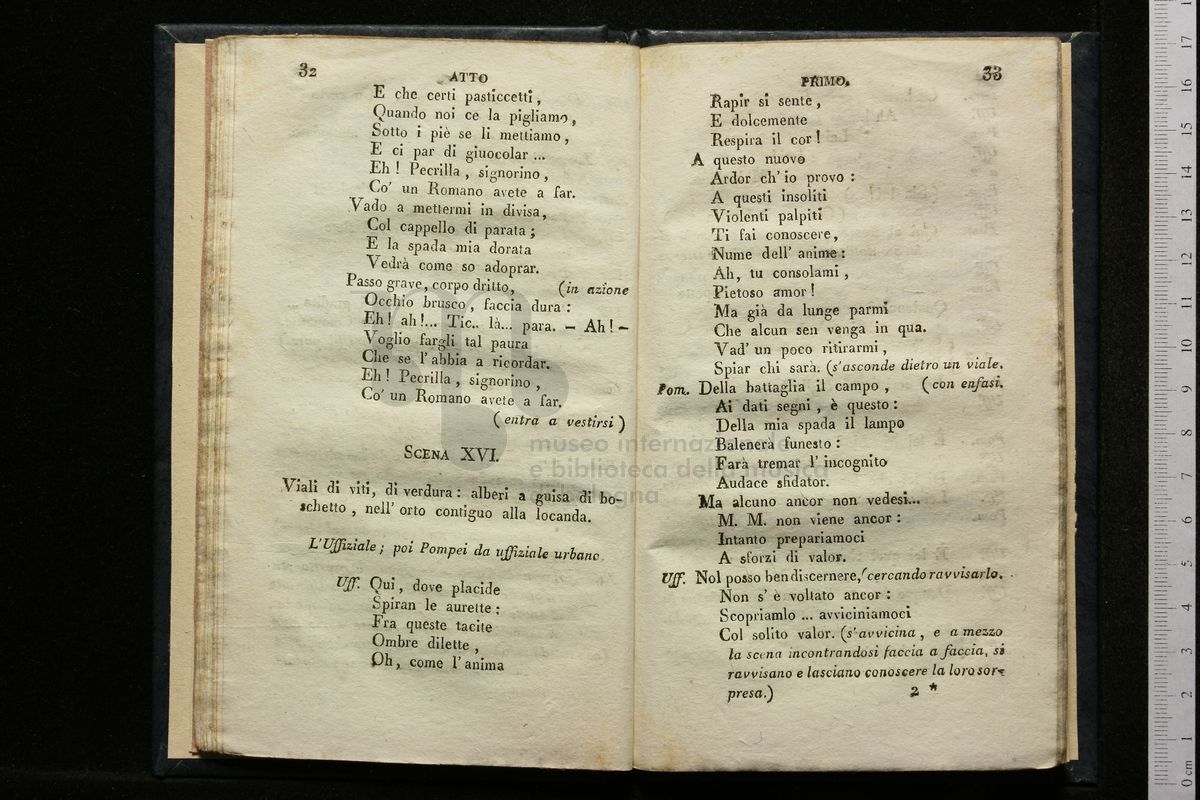 32
ATTO
E che certi pasticcetti,
Quando noi ce la pigliamo,
Sotto i piè se li mettiamo,
E ci par di giuocolar ...
Eh! Pecrilla, signorino,
Co' un Romano avete a far.
Vado a mettermi in divisa,
Col cappello di parata;
E la spada mia dorata
Vedrà come so adoprar.
Passo grave, corpo dritto, (in azione
Occhio brusco, faccia dura:
Eh! ah!... Tic.. là... para. — Ah! —
Voglio fargli tal paura
Che se l'abbia a ricordar.
Eh! Pecrilla, signorino,
Co' un Romano avete a far.
(entra a vestirsi)
SCENA XVI.
Viali di viti, di verdura: alberi a guisa di bo-
schetto, nell' orto contiguo alla locanda.
L'Uffiziale; poi Pompei da uffiziale urbano.
Uff. Qui, dove placide
Spiran le aurette:
Fra queste tacite
Ombre dilette,
Oh, come l'anima
PRIMO.
33
Rapir si sente,
E dolcemente
Respira il cor!
A questo nuovo
Ardor ch' io provo:
A questi insoliti
Violenti palpiti
Ti fai conoscere,
Nume dell' anime:
Ah, tu consolami,
Pietoso amor!
Ma già da lunge parmi
Che alcun sen venga in qua.
Vad' un poco ritirarmi,
Spiar chi sarà. (s'asconde dietro un viale.
Pom. Della battaglia il campo, (con enfasi.
Ai dati segni, è questo:
Della mia spada il lampo
Balenerà funesto:
Farà tremar l'incognito
Audace sfidator.
Ma alcuno ancor non vedesi...
M. M. non viene ancor:
Intanto prepariamoci
A sforzi di valor.
Uff. Nol posso ben discernere, (cercando ravvisarlo.
Non s' è voltato ancor:
Scopriamlo ... avviciniamoci
Col solito valor. (s'avvicina, e a mezzo
la scena incontrandosi faccia a faccia, si
ravvisano e lasciano conoscere la loro sor-
presa.)
2 *
museo internazionale
e biblioteca della musica
di bologna
17
16
15
14
13
12
11
10
9
8
7
6
5
4
3
2
1
0 cm